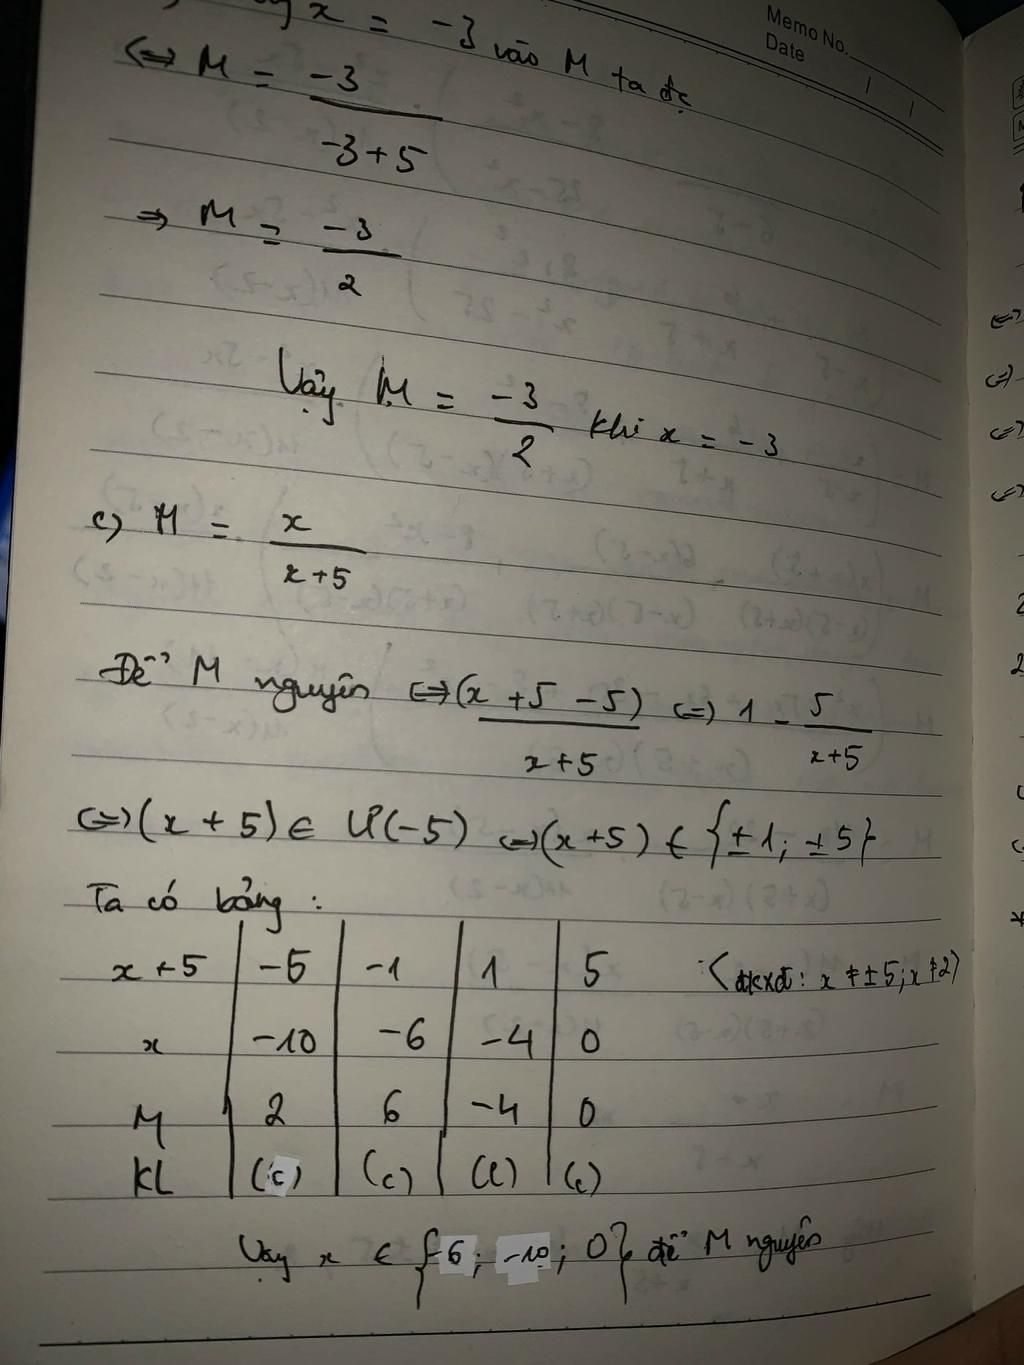 Memo No.
Date
x = -3 vào M ta đc
<=> M = -3 / -3+5
=> M = -3 / 2
Vậy M = -3 / 2 khi x = -3
c) M = x / x+5
Để M nguyên <=> (x +5 -5) / x+5 <=> 1 - 5 / x+5
<=> (x + 5) ∈ Ư(-5) <=> (x+5) ∈ {±1; ±5}
Ta có bảng :
x +5 | -5 | -1 | 1 | 5 (đkxđ: x ≠ ±5; x ≠ 2)
x | -10 | -6 | -4 | 0
M | 2 | 6 | -4 | 0
KL | (c) | (c) | (l) | (c)
Vậy x ∈ {-6; -10; 0} để M nguyên